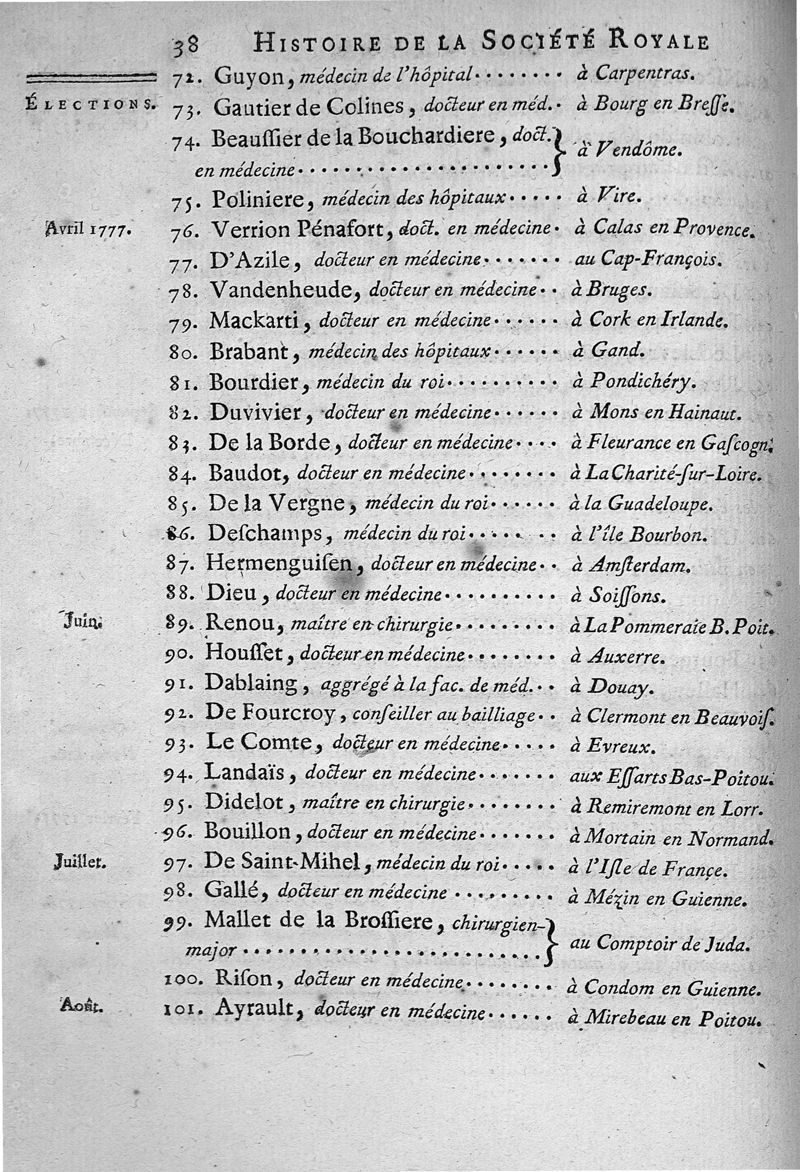 38 HISTOIRE DE LA SOCIÉTÉ ROYALE
72. Guyon, médecin de l'hôpital........ à Carpentras.
ÉLECTIONS. 73. Gautier de Colines, docteur en méd.. à Bourg en Breſſe.
74. Beauſſier de la Bouchardiere, doct. } à Vendôme.
en médecine......................
75. Poliniere, médecin des hôpitaux..... à Vire.
Avril 1777. 76. Verrion Pénafort, doct. en médecine. à Calas en Provence.
77. D'Azile, docteur en médecine....... au Cap-François.
78. Vandenheude, docteur en médecine.. à Bruges.
79. Mackarti, docteur en médecine...... à Cork en Irlande.
80. Brabant, médecin des hôpitaux...... à Gand.
81. Bourdier, médecin du roi.......... à Pondichéry.
82. Duvivier, docteur en médecine...... à Mons en Hainaut.
83. De la Borde, docteur en médecine.... à Fleurance en Gaſcogn.
84. Baudot, docteur en médecine........ à La Charité-ſur-Loire.
85. De la Vergne, médecin du roi...... à la Guadeloupe.
86. Deſchamps, médecin du roi........ à l'île Bourbon.
87. Hermenguiſen, docteur en médecine.. à Amſterdam.
88. Dieu, docteur en médecine.......... à Soiſſons.
Juin. 89. Renou, maître en chirurgie......... à La Pommeraie B. Poit.
90. Houſſet, docteur en médecine........ à Auxerre.
91. Dablaing, aggrégé à la fac. de méd... à Douay.
92. De Fourcroy, conſeiller au bailliage.. à Clermont en Beauvoiſ.
93. Le Comte, docteur en médecine..... à Evreux.
94. Landaïs, docteur en médecine....... aux Eſſarts Bas-Poitou.
95. Didelot, maître en chirurgie........ à Remiremont en Lorr.
96. Bouillon, docteur en médecine....... à Mortain en Normand.
Juillet. 97. De Saint-Mihel, médecin du roi..... à l'Iſle de France.
98. Gallé, docteur en médecine ......... à Mézin en Guienne.
99. Mallet de la Broſſiere, chirurgien- } au Comptoir de Juda.
major..........................
100. Riſon, docteur en médecine........ à Condom en Guienne.
Août. 101. Ayrault, docteur en médecine...... à Mirebeau en Poitou.